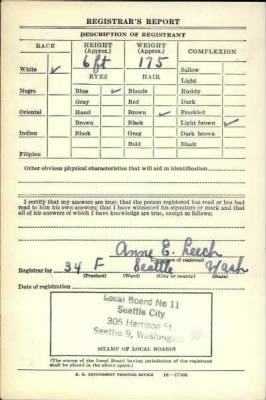 REGISTRAR'S REPORT
DESCRIPTION OF REGISTRANT
RACE HEIGHT (Approx.) WEIGHT (Approx.) COMPLEXION
6 ft 175
White ✓ EYES HAIR Sallow
Light
Negro Blue ✓ Blonde Ruddy
Gray Red Dark
Oriental Hazel Brown ✓ Freckled
Brown Black Light brown ✓
Indian Black Gray Dark brown
Bald Black
Filipino
Other obvious physical characteristics that will aid in identification
I certify that my answers are true; that the person registered has read or has had
read to him his own answers; that I have witnessed his signature or mark and that
all of his answers of which I have knowledge are true, except as follows:
Anne E. Leech
(Signature of registrar)
Registrar for 34 F Seattle Wash
(Precinct) (Ward) (City or county) (State)
Date of registration
Local Board No 11
Seattle City
305 Harrison St.
Seattle 9, Washington
STAMP OF LOCAL BOARD
(The stamp of the Local Board having jurisdiction of the registrant
shall be placed in the above space.)
U. S. GOVERNMENT PRINTING OFFICE